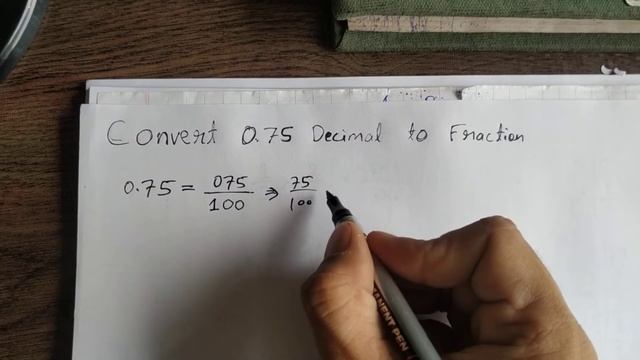 Convert 0.75 Decimal to Fraction
0.75 = 075/100 ⇒ 75/100
PERMANENT PEN